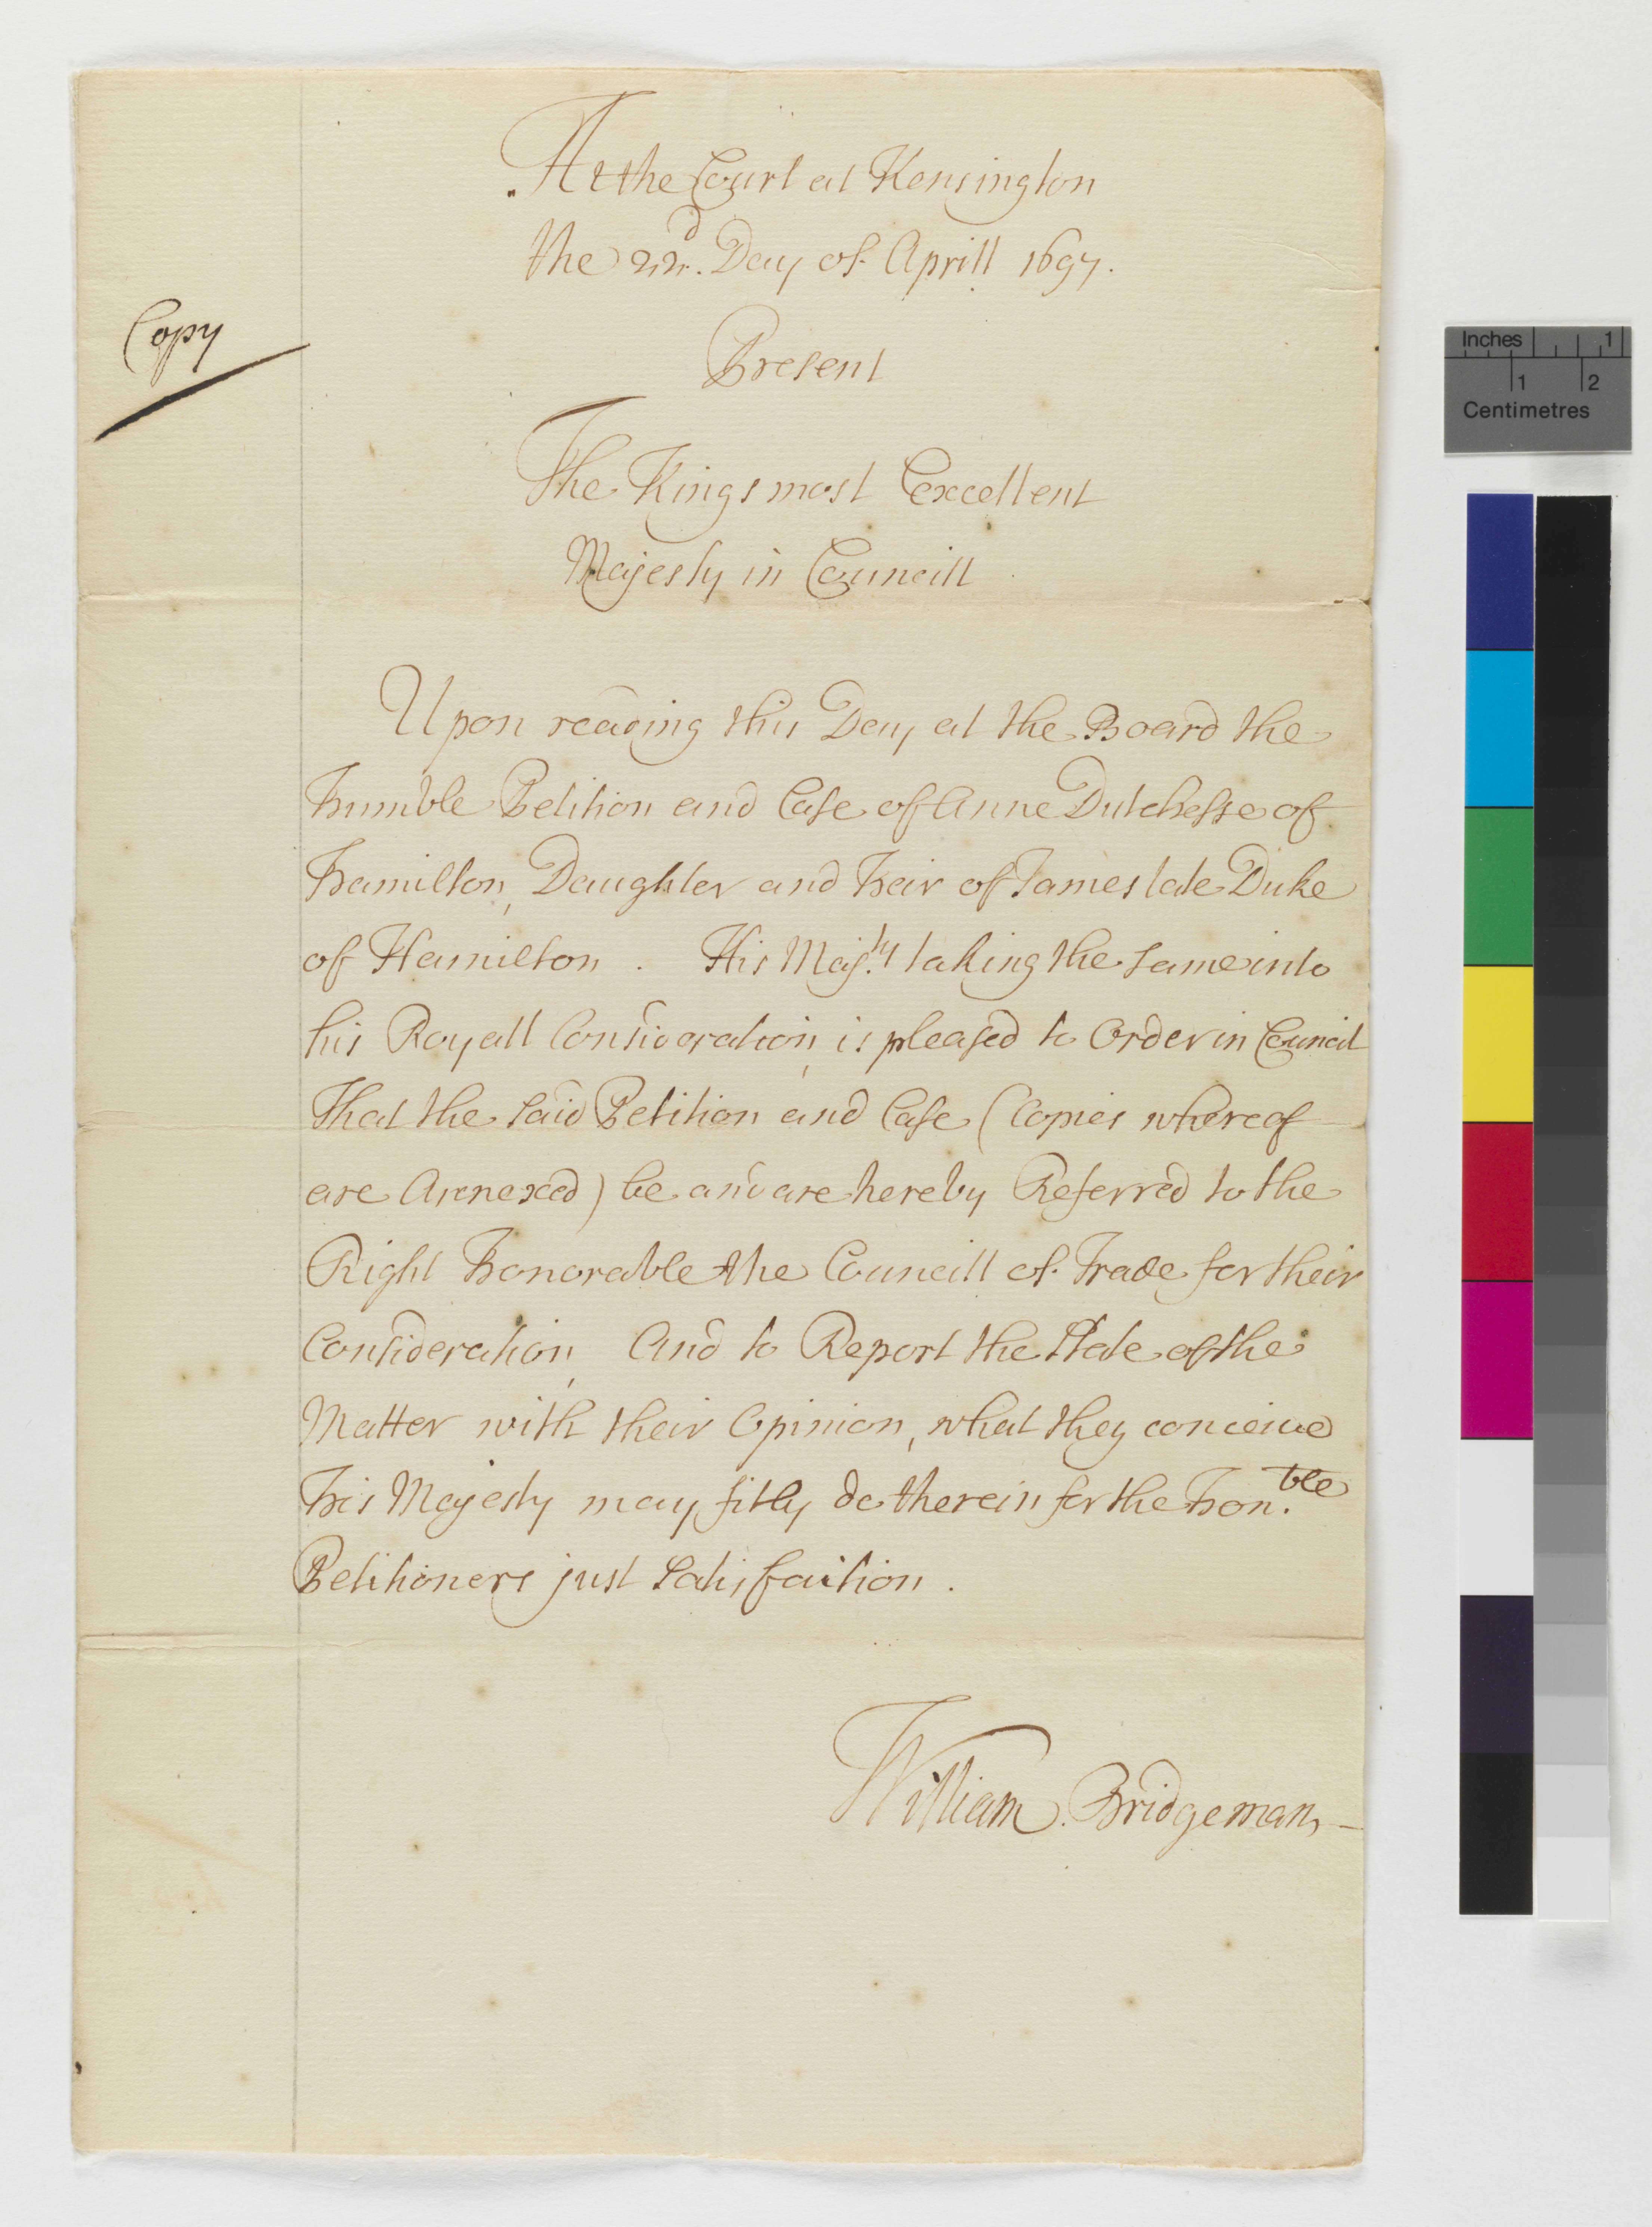 At the Court at Kensington
the 22d. Day of Aprill 1697.
Copy
Present
The Kings most Excellent
Majesty in Councill
Upon reading this Day at the Board the
humble Petition and Case of Anne Dutchesse of
Hamilton, Daughter and Heir of James late Duke
of Hamilton. His Maj.ty taking the same into
his Royall Consideration, is pleased to Order in Council
That the said Petition and Case (Copies whereof
are Annexed) be and are hereby Referred to the
Right Honorable the Councill of Trade for their
Consideration, And to Report the State of the
Matter with their Opinion, what they conceive
His Majesty may fitly do therein for the Hon.ble
Petitioners just Satisfaction.
William Bridgeman
Inches 1
1 2
Centimetres